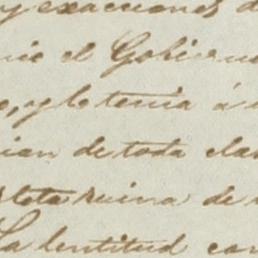 y exacciones d
nio el Gobierno
e, y le tenia á
ian de toda clas
pleta ruina de
La lentitud con